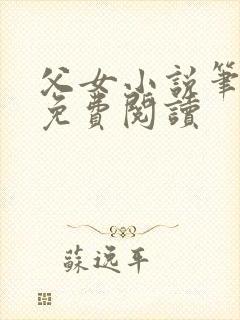 父女小説筆
免費閱讀
蘇逸平